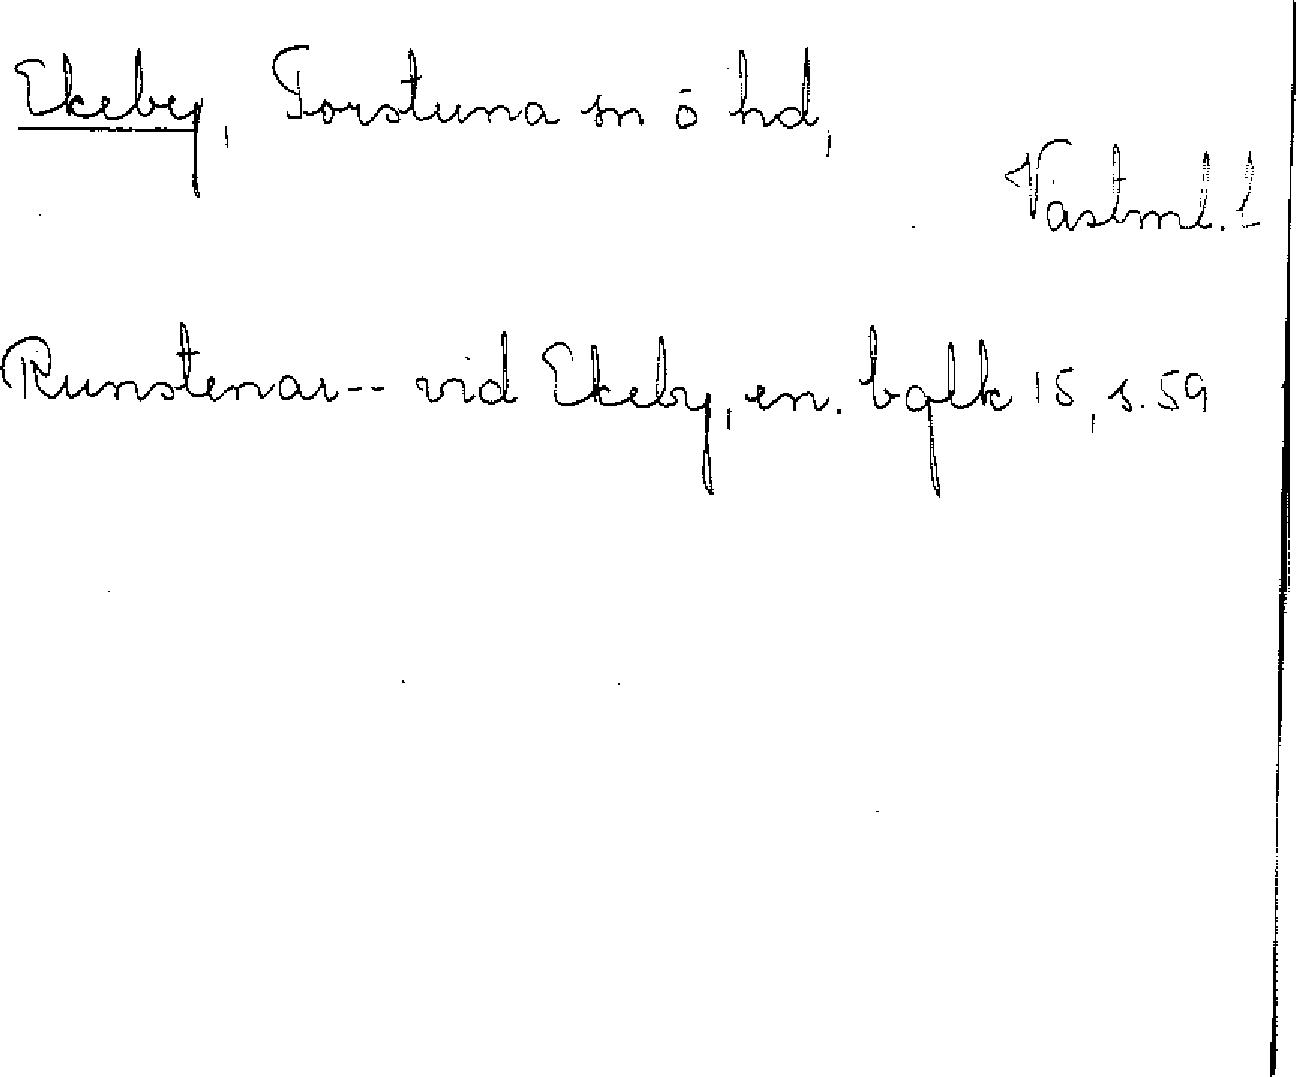 Ekeby, Torstuna sn ö hd,
Västml. l
Runstenar -- vid Ekeby, en. bqlk 15, s. 59